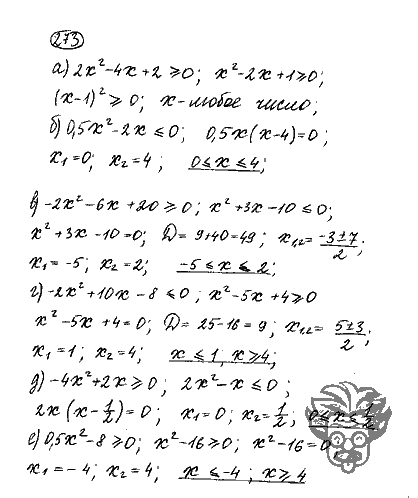 273
а) 2x² - 4x + 2 ≥ 0; x² - 2x + 1 ≥ 0;
(x-1)² ≥ 0; x - любое число;
б) 0,5x² - 2x ≤ 0; 0,5x(x-4) = 0;
x₁ = 0; x₂ = 4; 0 ≤ x ≤ 4;
в) -2x² - 6x + 20 ≥ 0; x² + 3x - 10 ≤ 0;
x² + 3x - 10 = 0; D = 9 + 40 = 49; x₁,₂ = (-3 ± 7)/2;
x₁ = -5; x₂ = 2; -5 ≤ x ≤ 2;
г) -2x² + 10x - 8 ≤ 0; x² - 5x + 4 ≥ 0
x² - 5x + 4 = 0; D = 25 - 16 = 9; x₁,₂ = (5 ± 3)/2;
x₁ = 1; x₂ = 4; x ≤ 1, x ≥ 4;
д) -4x² + 2x ≥ 0; 2x² - x ≤ 0;
2x(x - 1/2) = 0; x₁ = 0; x₂ = 1/2; 0 ≤ x ≤ 1/2
е) 0,5x² - 8 ≥ 0; x² - 16 ≥ 0; x² - 16 = 0
x₁ = -4; x₂ = 4; x ≤ -4; x ≥ 4